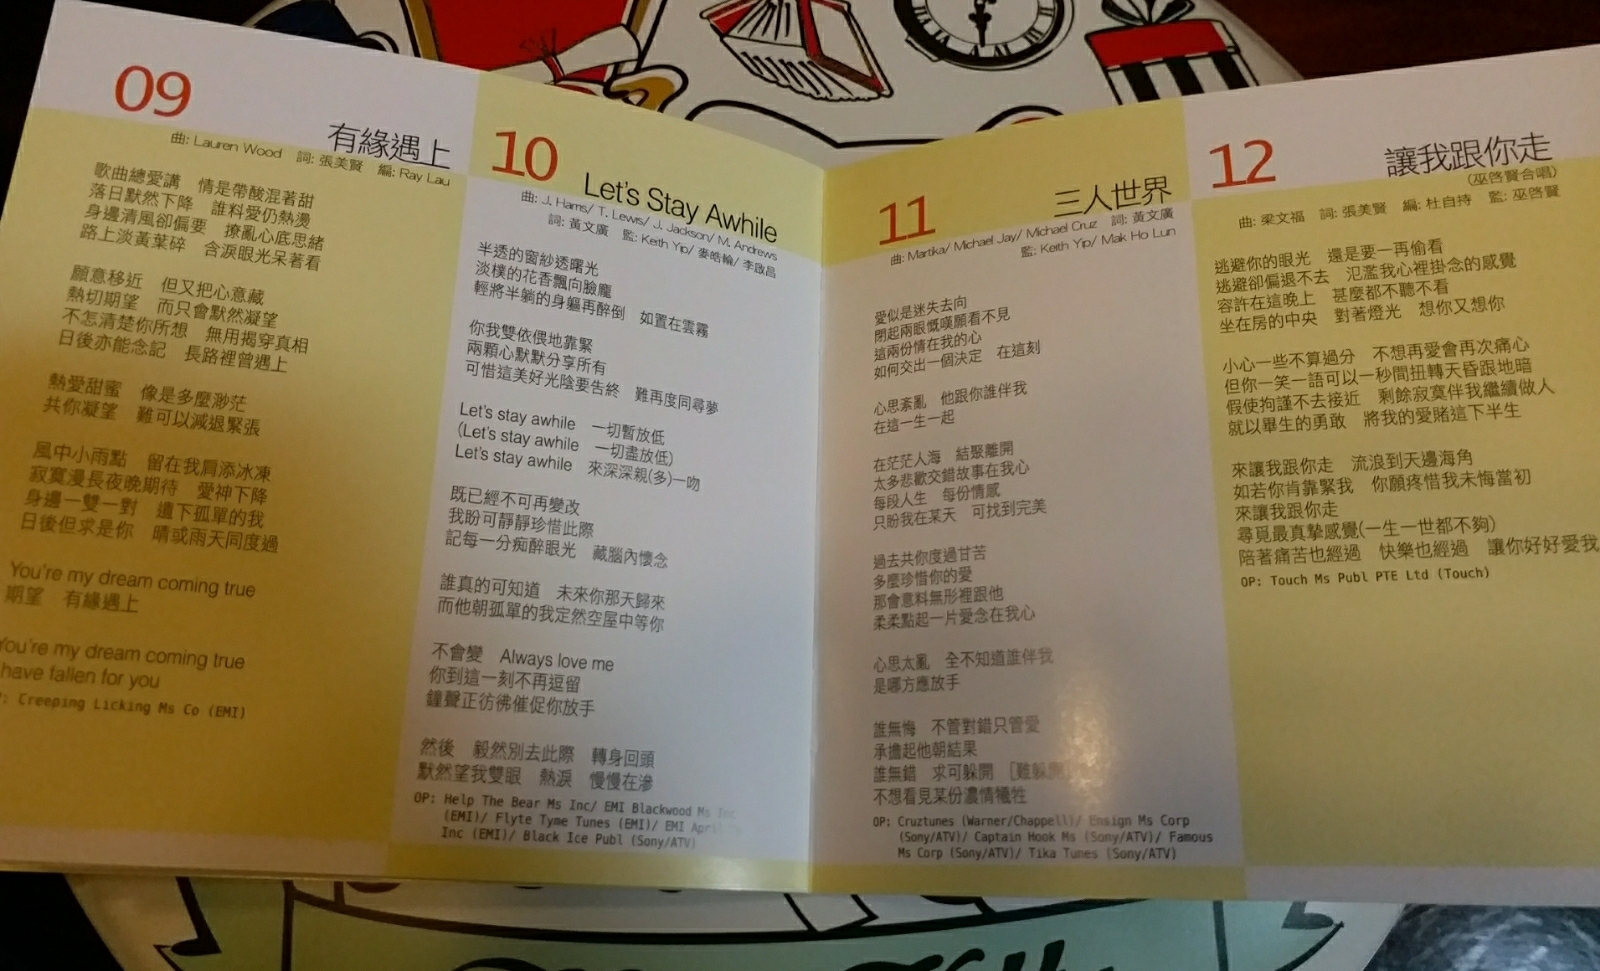 09
有緣遇上
曲: Lauren Wood 詞: 張美賢 編: Ray Lau
歌曲總愛講 情是帶酸混著甜
落日默然下降 誰料愛仍熱燙
身邊清風卻偏要 撩亂心底思緒
路上淡黃葉碎 含淚眼光呆著看
願意移近 但又把心意藏
熱切期望 而只會默然凝望
不怎清楚你所想 無用揭穿真相
日後亦能念記 長路裡曾遇上
熱愛甜蜜 像是多麼渺茫
共你凝望 難可以減退緊張
風中小雨點 留在我肩添冰凍
寂寞漫長夜晚期待 愛神下降
身邊一雙一對 遺下孤單的我
日後但求是你 晴或雨天同度過
You're my dream coming true
期望 有緣遇上
You're my dream coming true
have fallen for you
: Creeping Licking Ms Co (EMI)
10
Let's Stay Awhile
曲: J. Harris/ T. Lewis/ J. Jackson/ M. Andrews
詞: 黃文廣 監: Keith Yip/ 麥皓輪/ 李啟昌
半透的窗紗透曙光
淡樸的花香飄向臉龐
輕將半躺的身軀再醉倒 如置在雲霧
你我雙依偎地靠緊
兩顆心默默分享所有
可惜這美好光陰要告終 難再度同尋夢
Let's stay awhile 一切暫放低
(Let's stay awhile 一切盡放低)
Let's stay awhile 來深深親(多)一吻
既已經不可再變改
我盼可靜靜珍惜此際
記每一分痴醉眼光 藏腦內懷念
誰真的可知道 未來你那天歸來
而他朝孤單的我定然空屋中等你
不會變 Always love me
你到這一刻不再逗留
鐘聲正彷彿催促你放手
然後 毅然別去此際 轉身回頭
默然望我雙眼 熱淚 慢慢在滲
OP: Help The Bear Ms Inc/ EMI Blackwood Ms Inc
(EMI)/ Flyte Tyme Tunes (EMI)/ EMI April
Inc (EMI)/ Black Ice Publ (Sony/ATV)
11
三人世界
曲: Martika/ Michael Jay/ Michael Cruz 詞: 黃文廣
監: Keith Yip/ Mak Ho Lun
愛似是迷失去向
閉起兩眼慨嘆願看不見
這兩份情在我的心
如何交出一個決定 在這刻
心思紊亂 他跟你誰伴我
在這一生一起
在茫茫人海 結聚離開
太多悲歡交錯故事在我心
每段人生 每份情感
只盼我在某天 可找到完美
過去共你度過甘苦
多麼珍惜你的愛
那會意料無形裡跟他
柔柔點起一片愛念在我心
心思太亂 全不知道誰伴我
是哪方應放手
誰無悔 不管對錯只管愛
承擔起他朝結果
誰無錯 求可躲開 [難躲開]
不想看見某份濃情犧牲
OP: Cruztunes (Warner/Chappell)/ Ensign Ms Corp
(Sony/ATV)/ Captain Hook Ms (Sony/ATV)/ Famous
Ms Corp (Sony/ATV)/ Tika Tunes (Sony/ATV)
12
讓我跟你走
(巫啓賢合唱)
曲: 梁文福 詞: 張美賢 編: 杜自持 監: 巫啓賢
逃避你的眼光 還是要一再偷看
逃避卻偏退不去 氾濫我心裡掛念的感覺
容許在這晚上 甚麼都不聽不看
坐在房的中央 對著燈光 想你又想你
小心一些不算過分 不想再愛會再次痛心
但你一笑一語可以一秒間扭轉天昏跟地暗
假使拘謹不去接近 剩餘寂寞伴我繼續做人
就以畢生的勇敢 將我的愛賭這下半生
來讓我跟你走 流浪到天邊海角
如若你肯靠緊我 你願疼惜我未悔當初
來讓我跟你走
尋覓最真摯感覺(一生一世都不夠)
陪著痛苦也經過 快樂也經過 讓你好好愛我
OP: Touch Ms Publ PTE Ltd (Touch)